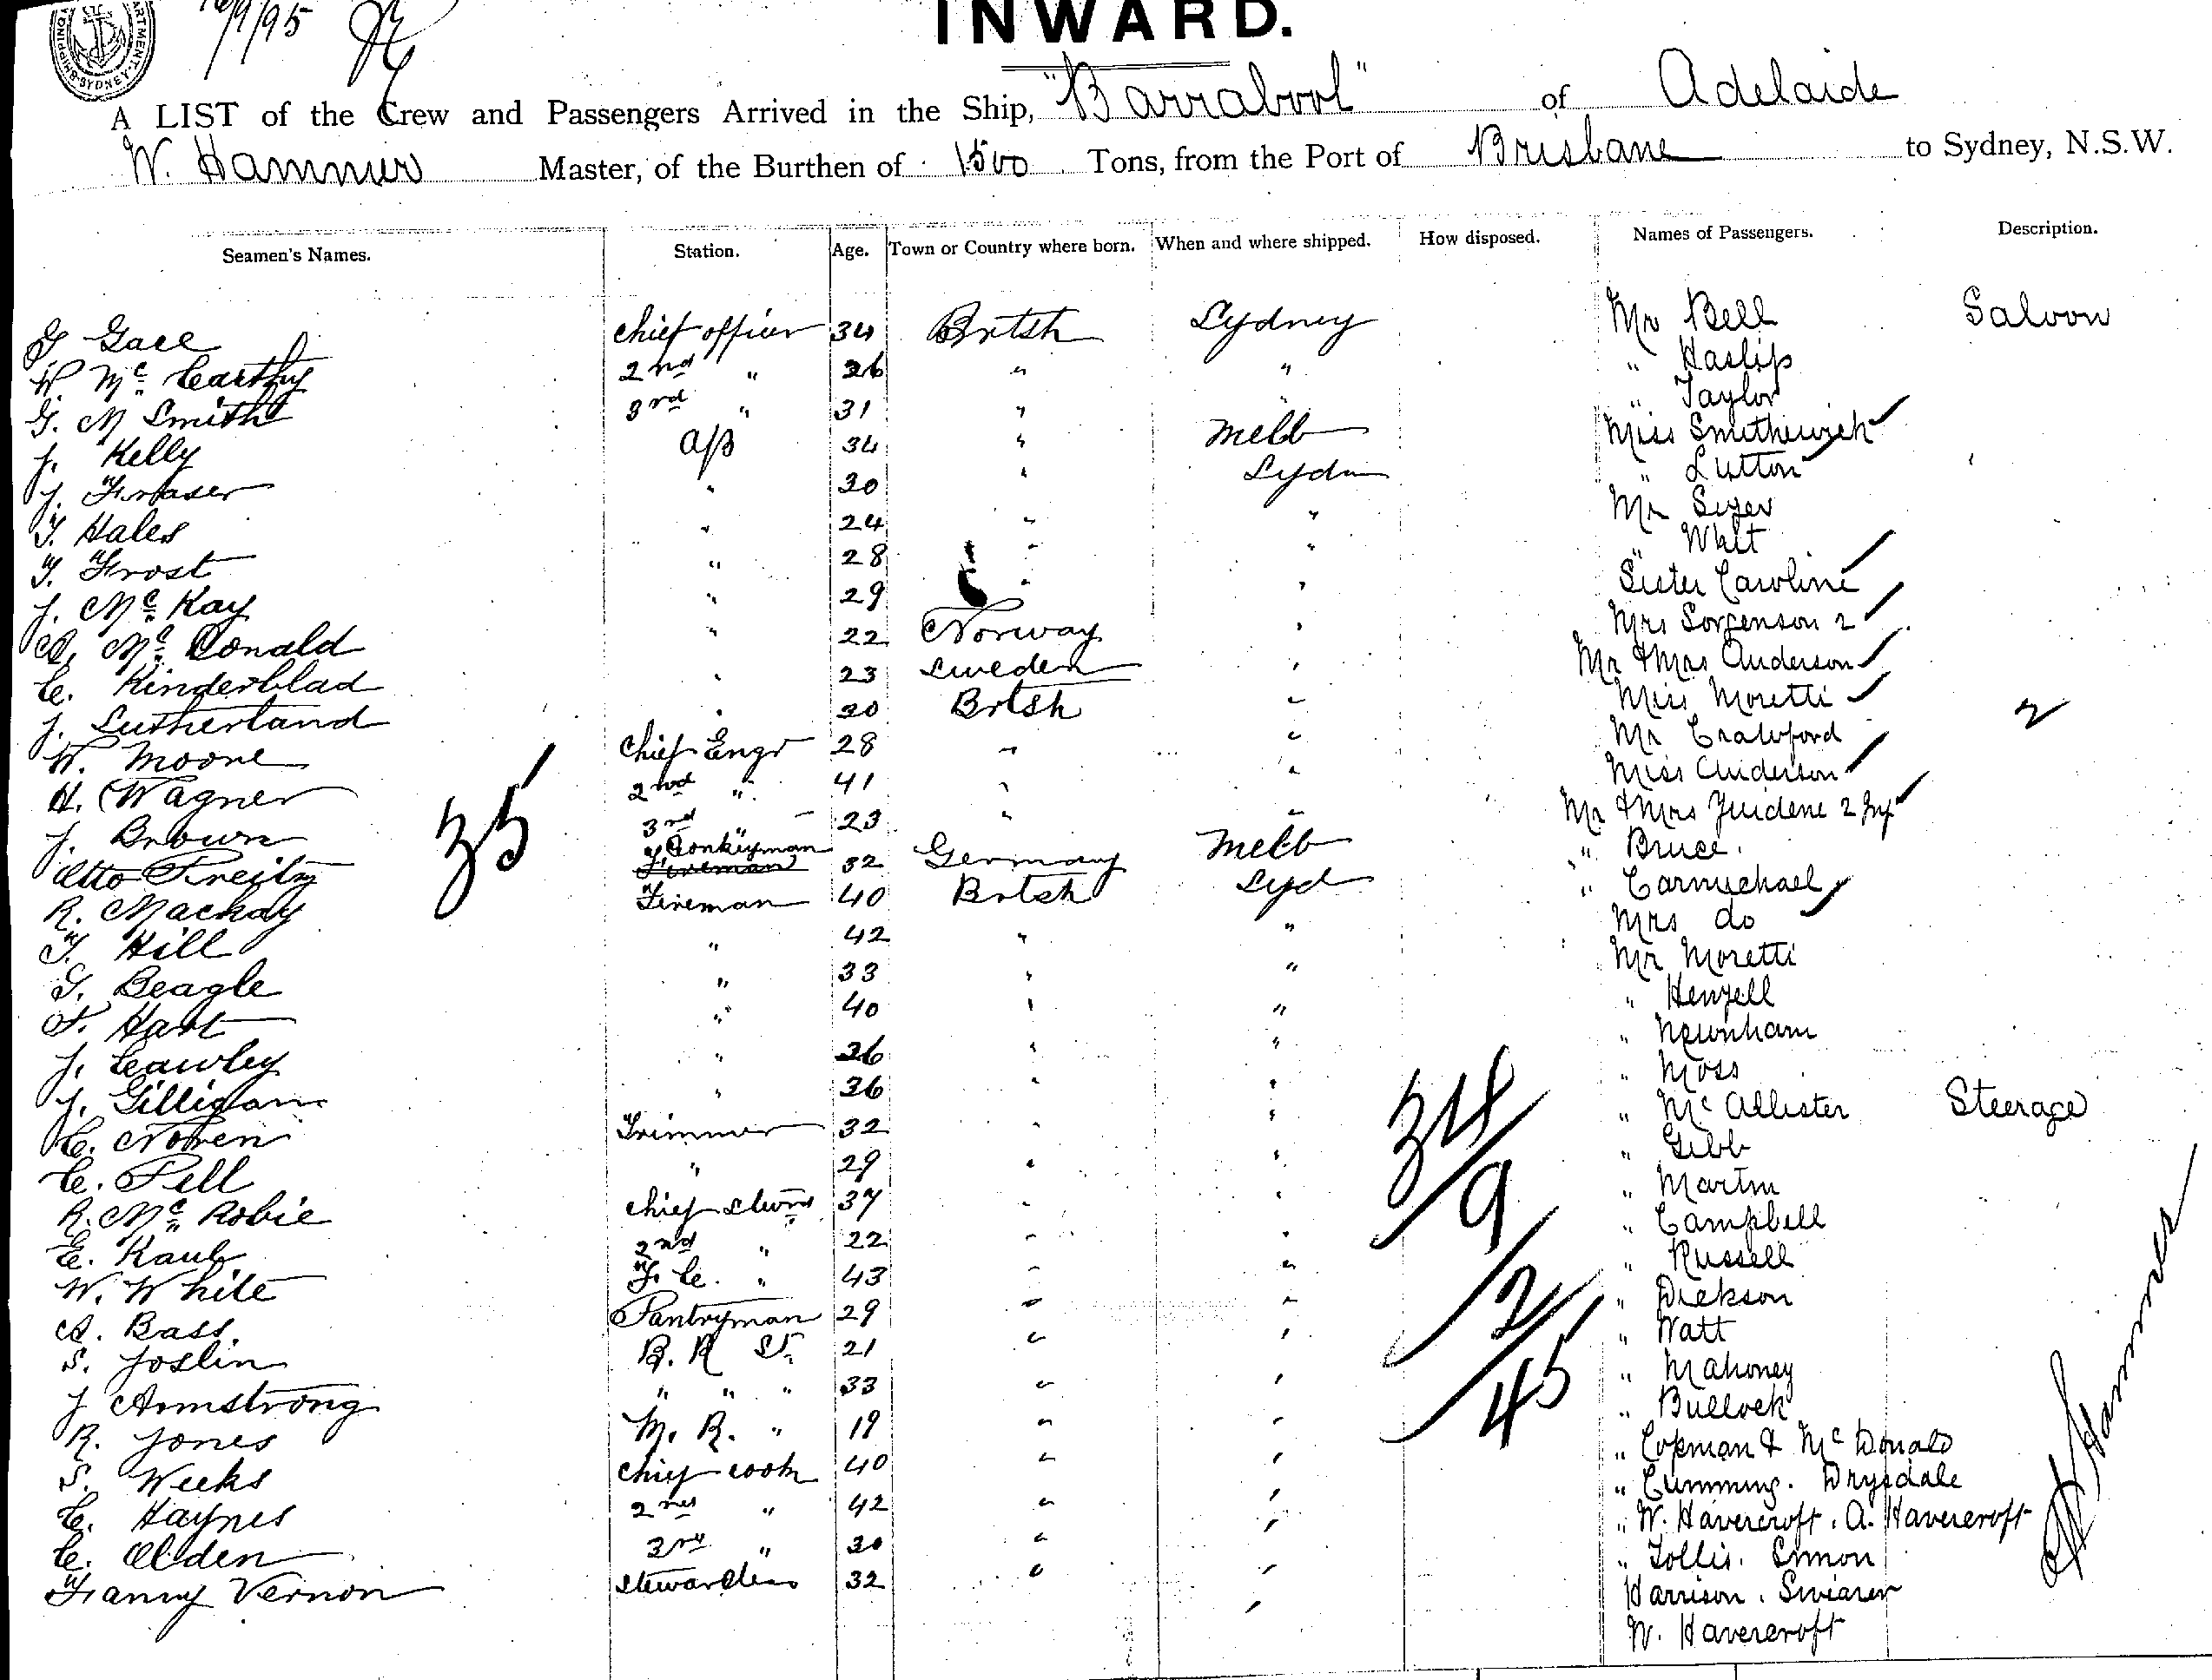 16/9/95
SHIPPING DEPARTMENT SYDNEY
INWARD.
A LIST of the Crew and Passengers Arrived in the Ship, "Barrabool" of Adelaide
W. Hammer Master, of the Burthen of 1500 Tons, from the Port of Brisbane to Sydney, N.S.W.
Seamen's Names. Station. Age. Town or Country where born. When and where shipped. How disposed. Names of Passengers. Description.
Chief officer 34 Brtsh Sydney Mr Bell Saloon
W. Mc Carthy 2nd " 26 " " " Haslip
G. M Smith 3rd " 31 " " " Taylor
J. Kelly A/B 34 " Melb Miss Smithewick
J. Fraser " 30 " Sydn " Lutton
T. Hales " 24 " " Mr
T. Frost " 28 " " "
J. Mc Kay " 29 " " Sister Caroline
Mc Donald " 22 Norway " Mrs Sorgenson 2
C. Kinderblad " 23 Sweden " Mr & Mrs Anderson
J. Sutherland " 20 Brtsh " Miss Moretti 2
W. Moore Chief Engr 28 " " Mr Crawford
H. Wagner 2nd " 41 " " Miss Anderson
J. Brown 3rd " 23 " " Mr & Mrs 2 Inf
35
Otto Donkeyman Fireman 32 Germany Melb " Bruce.
R. Mackay Fireman 40 Brtsh Syd " Carmichael
T. Hill " 42 " " Mrs do
G. Beagle " 33 " " Mr Moretti
T. Hart " 40 " " " Henzell
J. Cawley " 26 " " " Newnham
J. Gilligan " 36 " " " Moss
C. Noren Trimmer 32 " " " Mc Allister Steerage
C. Pell " 29 " " " Gibb
R. Mc Robie Chief Stwrd 37 " " " Martin
E. Kaub 2nd " 22 " " " Campbell
W. White F. C. " 43 " " " Russell
A. Bass. Pantryman 29 " " " Dickson
S. Joslin B. R St. 21 " " " Watt
J Armstrong " " " 33 " " " Mahoney
R. Jones M. R. " 19 " " " Bullock
S. Weeks Chief cook 40 " " " Copman & Mc Donald
C. Haynes 2nd " 42 " " " Cumming. Drysdale
C. Olden 3rd " 30 " " " W. Havercroft. A. Havercroft
Fanny Vernon Stewardess 32 " " " Tollis. Simon
Harrison.
W. Havercroft
34
9
2
45
Hammer